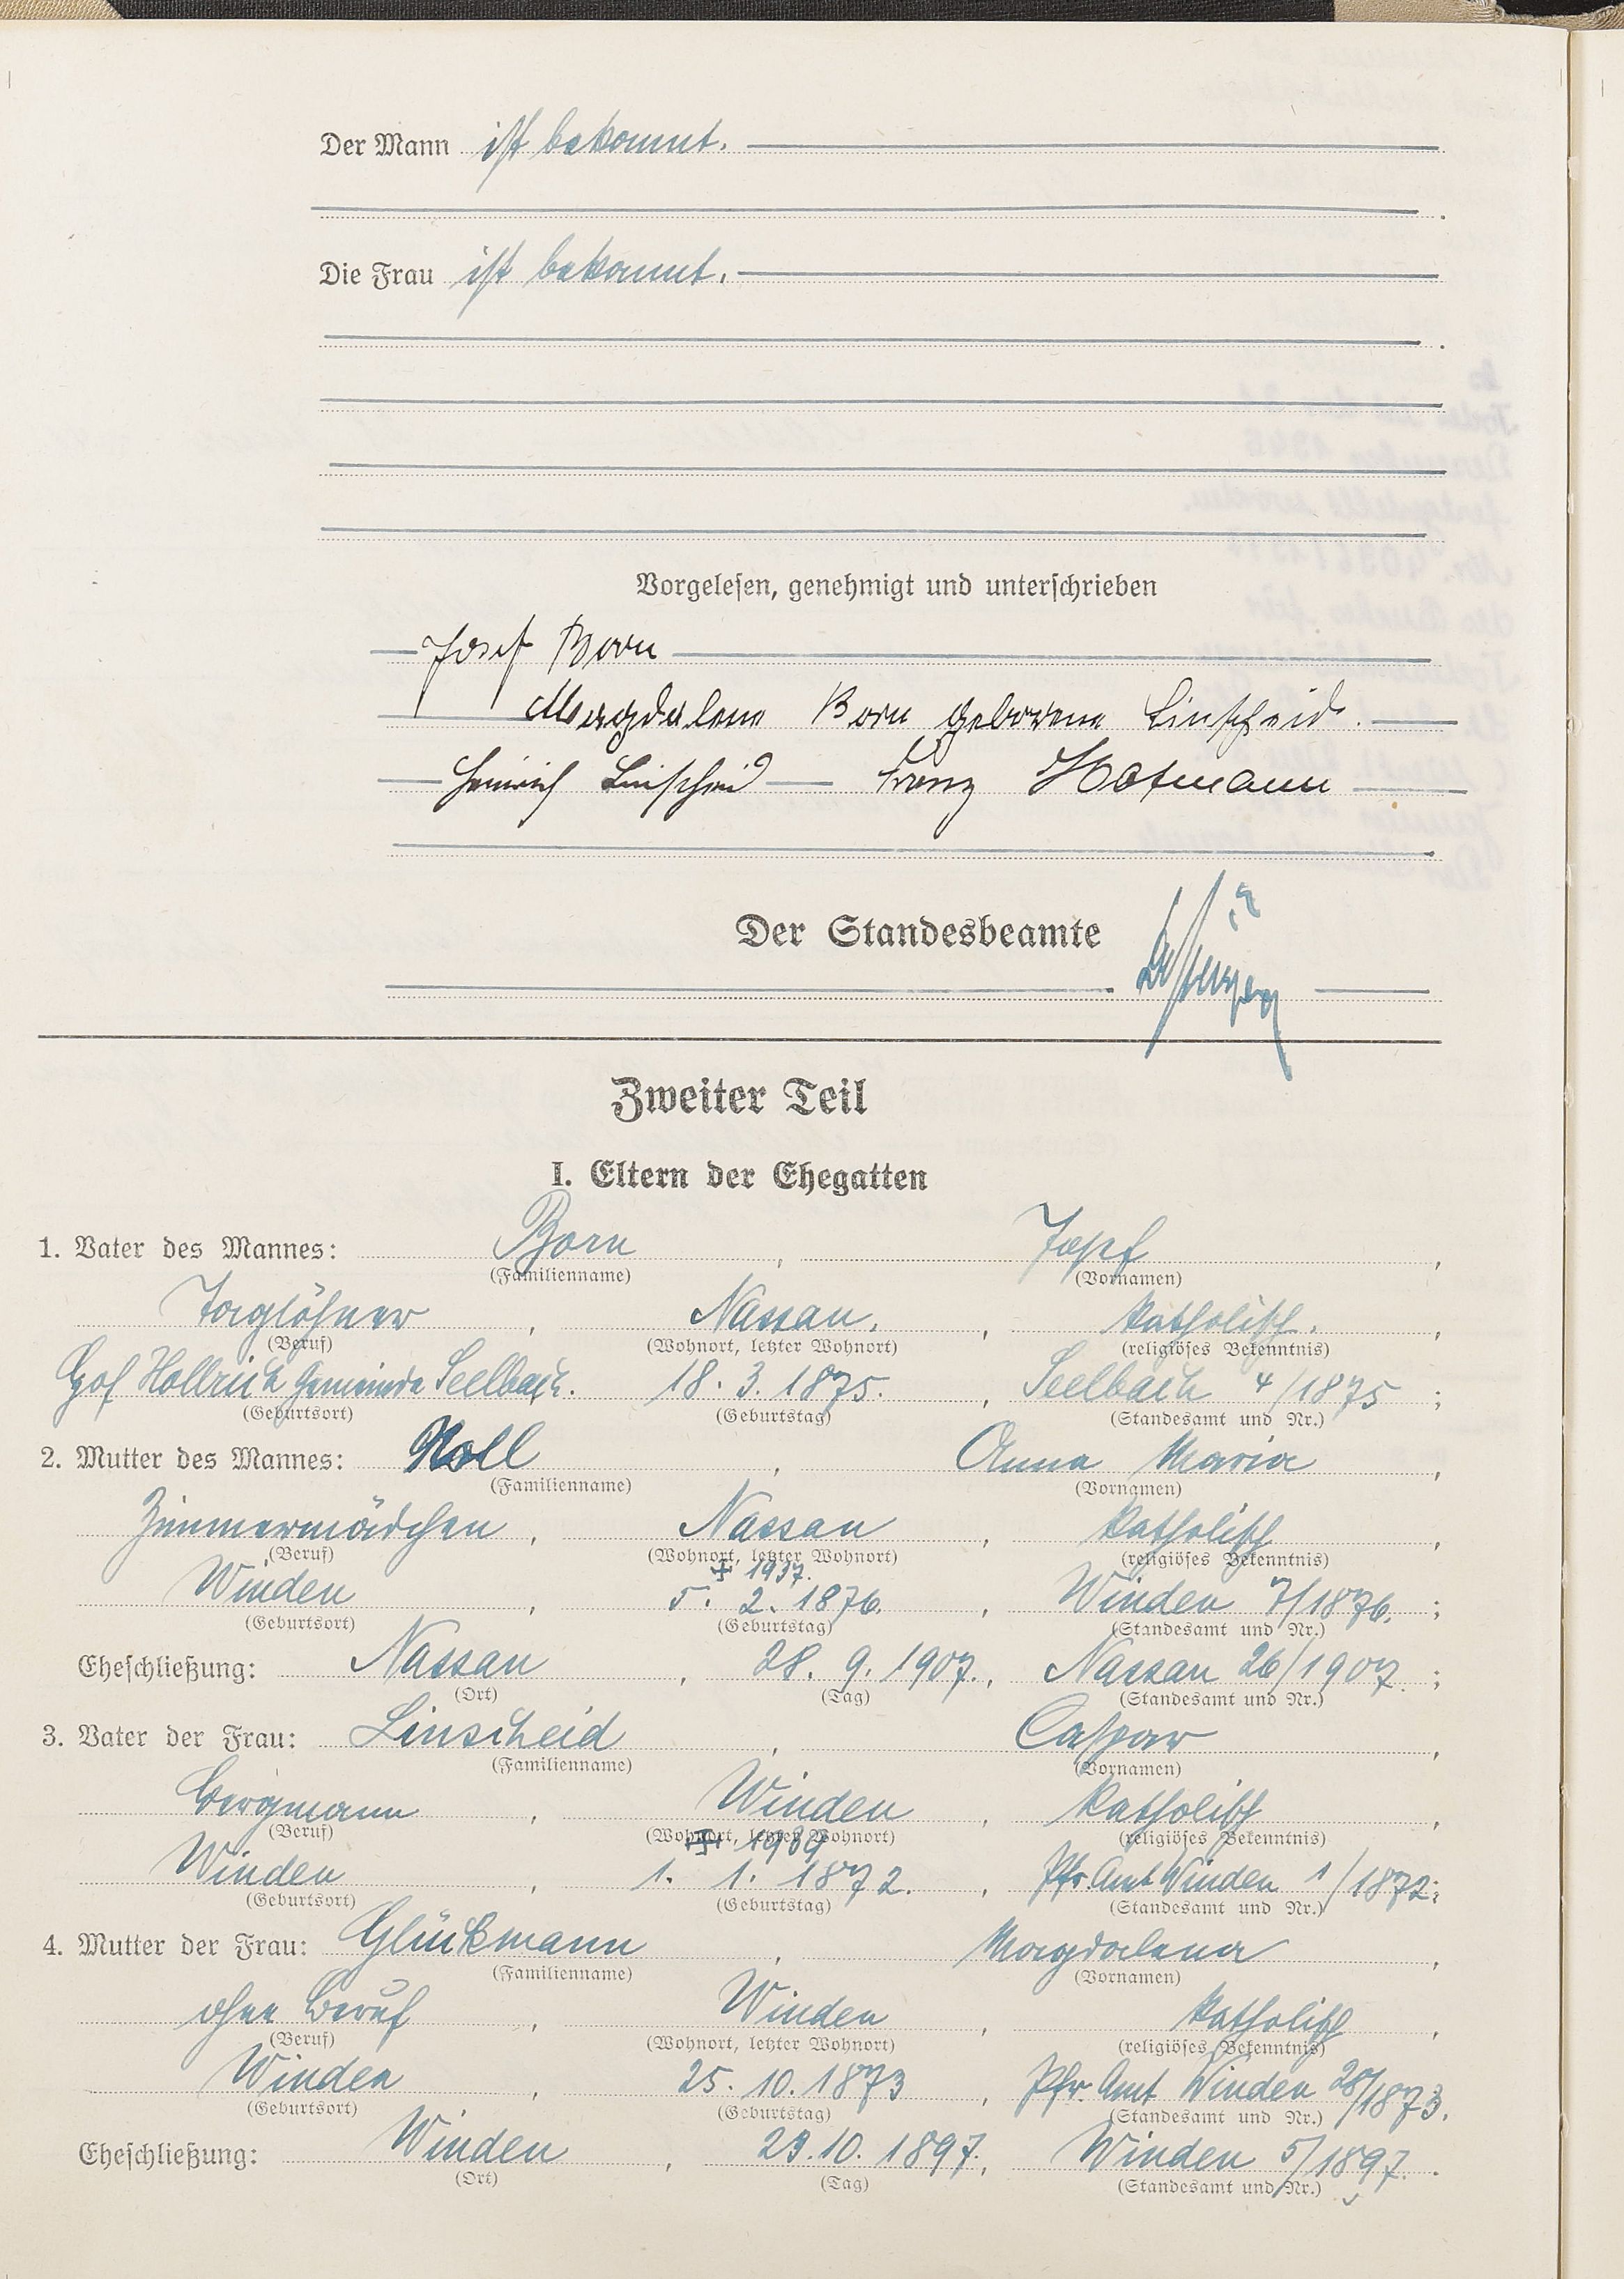 Der Mann ist bekannt.
Die Frau ist bekannt.
Vorgelesen, genehmigt und unterschrieben
Josef Born
Magdalene Born geborene Linscheid.
Heinrich Linscheid Franz Hofmann
Der Standesbeamte
Zweiter Teil
I. Eltern der Ehegatten
1. Vater des Mannes: Born, Josef,
(Familienname) (Vornamen)
Taglöhner, Nassau, katholisch,
(Beruf) (Wohnort, letzter Wohnort) (religiöses Bekenntnis)
Hof Hollrich Gemeinde Seelbach. 18. 3. 1875., Seelbach 4/1875;
(Geburtsort) (Geburtstag) (Standesamt und Nr.)
2. Mutter des Mannes: Noll, Anna Maria,
(Familienname) (Vornamen)
Zimmermädchen, Nassau, katholisch,
(Beruf) (Wohnort, letzter Wohnort) (religiöses Bekenntnis)
+ 1937.
Winden, 5. 2. 1876., Winden 7/1876.;
(Geburtsort) (Geburtstag) (Standesamt und Nr.)
Eheschließung: Nassau, 28. 9. 1907., Nassau 26/1907.;
(Ort) (Tag) (Standesamt und Nr.)
3. Vater der Frau: Linscheid, Caspar,
(Familienname) (Vornamen)
Bergmann, Winden, katholisch,
(Beruf) (Wohnort, letzter Wohnort) (religiöses Bekenntnis)
+ 1939
Winden, 1. 1. 1872., Pfr. Amt Winden 1/1872;
(Geburtsort) (Geburtstag) (Standesamt und Nr.)
4. Mutter der Frau: Glückmann, Magdalena,
(Familienname) (Vornamen)
ohne Beruf, Winden, katholisch,
(Beruf) (Wohnort, letzter Wohnort) (religiöses Bekenntnis)
Winden, 25. 10. 1873, Pfr. Amt Winden 28/1873.
(Geburtsort) (Geburtstag) (Standesamt und Nr.)
Eheschließung: Winden, 23. 10. 1897., Winden 5/1897.
(Ort) (Tag) (Standesamt und Nr.)